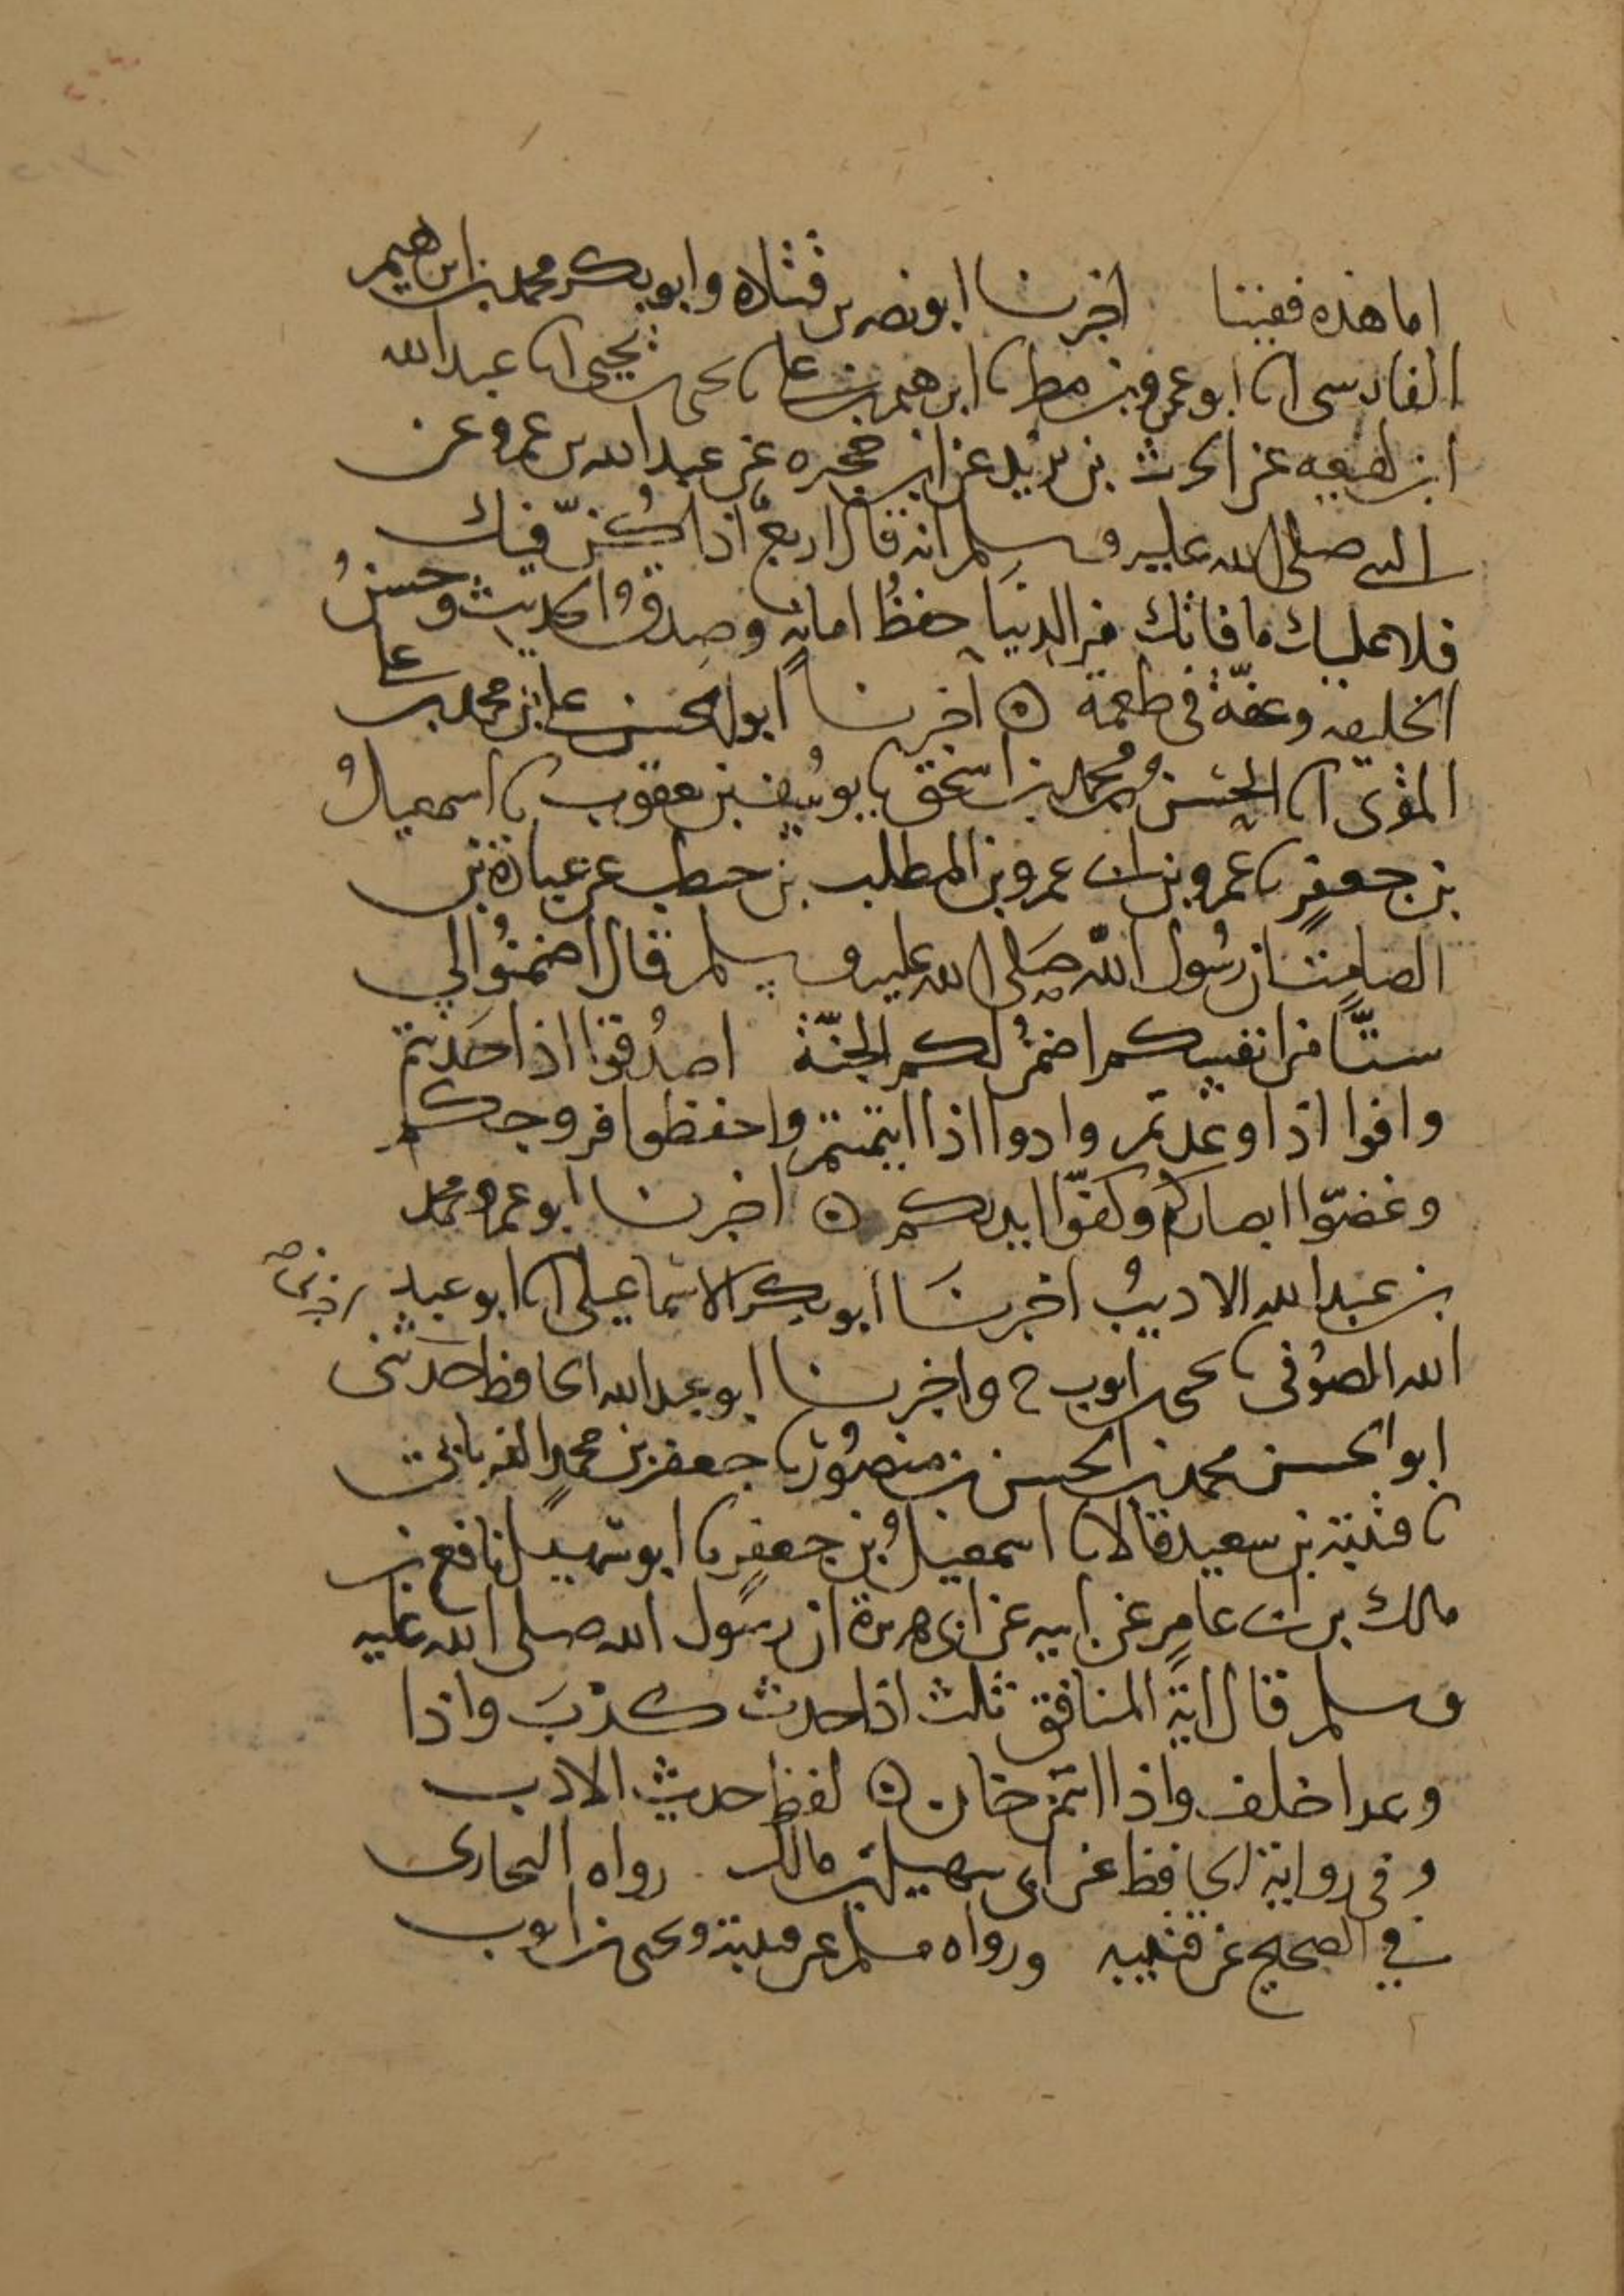 اما هذه ففيتنا اخبرنا ابو نصر بن قتادة وابو بكر محمد بن ابرهيم
الفارسى انا ابو عمرو بن مطر نا ابرهيم بن على نا يحيى بن يحيى انا عبد الله
ابن لهيعه عن الحرث بن يزيد عن ابن حجيره عن عبد الله بن عمرو عن
النبي صلى الله عليه وسلم انه قال اربعٌ اذا كُنّ فيك
فلا عليك ما فاتك من الدنيا حفظُ امانةٍ وصدقُ الحديث وحسنُ
الخليقه وعفّةٌ في طعمة ۞ اخبرنا ابو الحسن على بن محمد بن على
المقرى انا الحسنُ بن محمد بن اسحق نا يوسف بن يعقوب نا اسمعيلُ
بن جعفرٍ نا عمرو بن ابى عمرو بن المطلب بن حنطب عن عبادة بن
الصامت ان رسُول الله صَلى الله عليه وسلم قال اضمنُوا لي
ستًّا من انفسكم اضمنُ لكم الجنّة اصدُقوا اذا حَدثتم
وافوا اذا وعدتم وادوا اذا ايتمنتم واحفظوا فروجكم
وغضّوا ابصاركم وكفّوا ايديكم ۞ اخبرنا ابو عمرو محمد
بن عبد الله الاديبُ اخبرنَا ابو بكر الاسماعيلى انا ابو عبد
الله الصوُفى نا يحيى بن ايوب ح واخبرنا ابو عبد الله الحافظ حَدثنى
ابو الحسن محمد بن الحسن بن منصُور نا جعفر بن محمدٍ الفريابي
نا قتيبة بن سعيد قالا نا اسمعيلُ بن جعفرٍ نا ابو سهيل نافع بن
مالك بن ابى عامرٍ عن ابيه عن ابى هريرة ان رسُول الله صلى الله عليه
وسلم قال ايَة المنافق ثلث اذا حدث كذبَ واذا
وعد اخلف واذا ائتمن خان ۞ لفظ حديث الاديب
وفى رواية الحافظ عن ابى سهيل بن مالك رواه البخارى
في الصحيح عن قتيبه ورواه مسلم عن قتيبة ويحيى بن ايوب